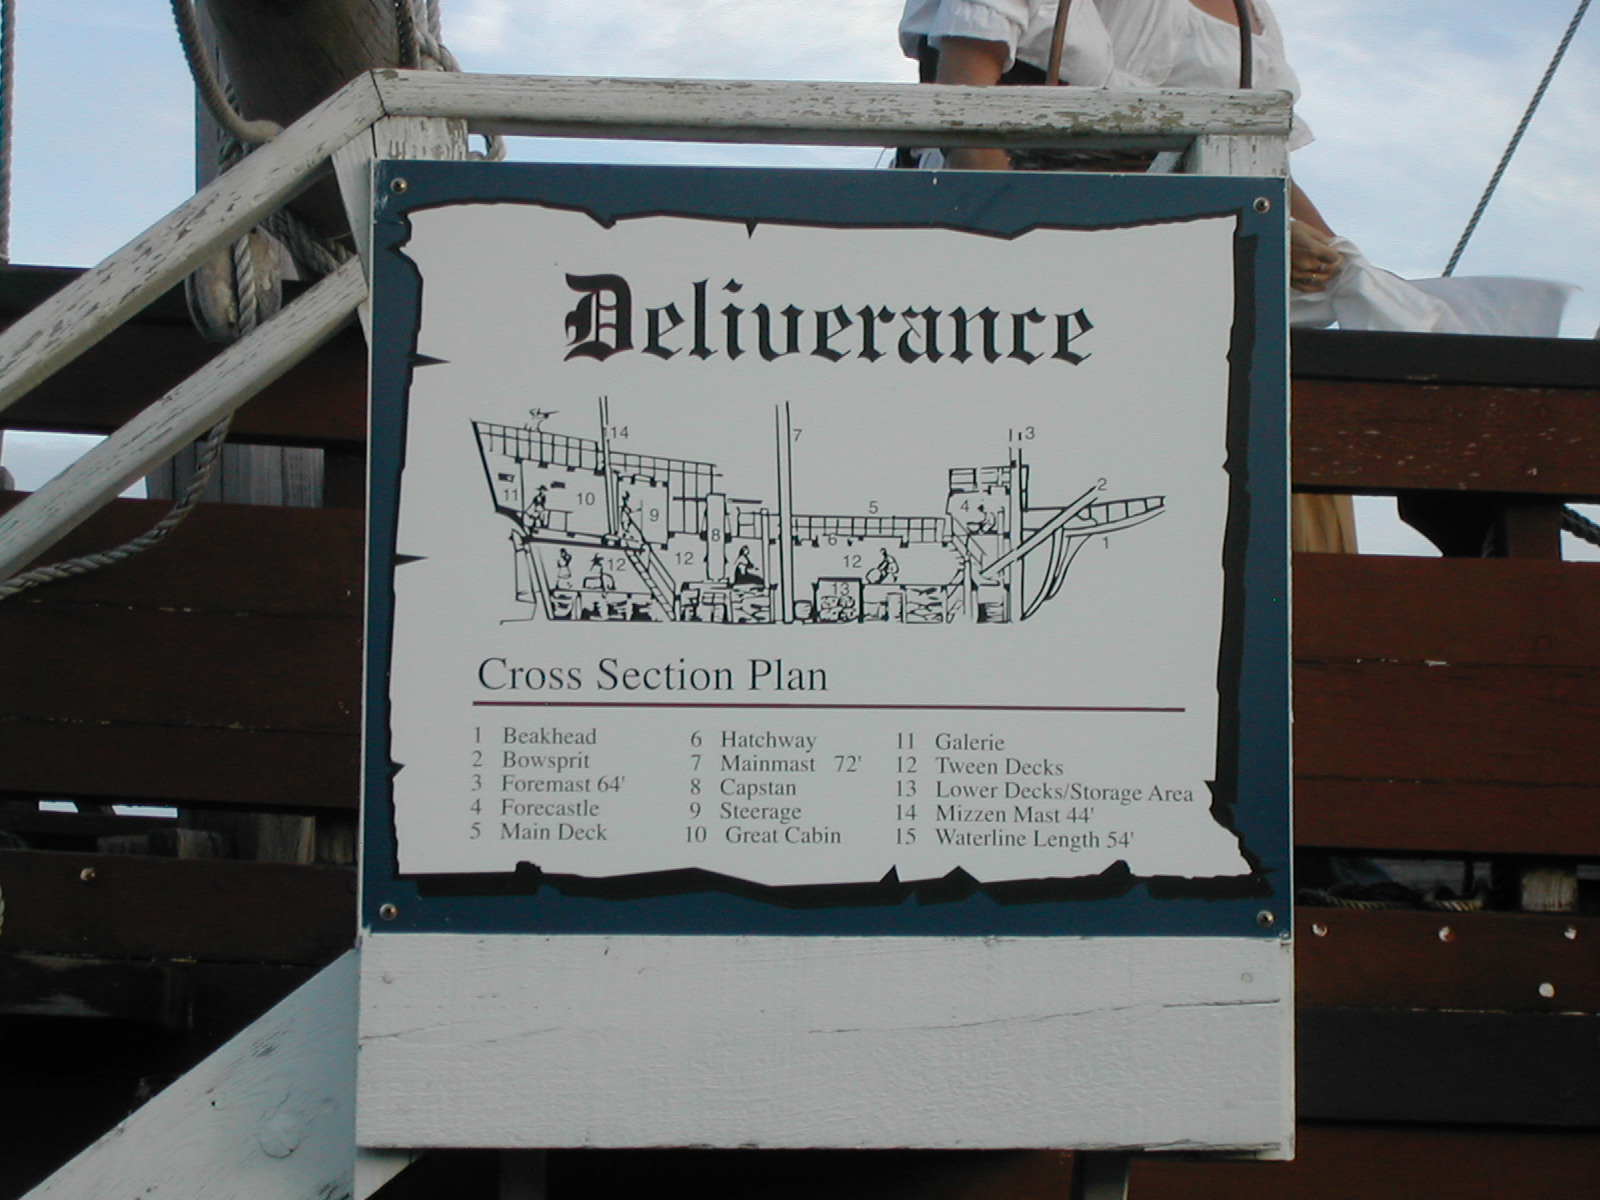 Deliverance
14
7
3
2
11
10
9
8
5
6
4
1
12
12
12
13
Cross Section Plan
1 Beakhead
2 Bowsprit
3 Foremast 64'
4 Forecastle
5 Main Deck
6 Hatchway
7 Mainmast 72'
8 Capstan
9 Steerage
10 Great Cabin
11 Galerie
12 Tween Decks
13 Lower Decks/Storage Area
14 Mizzen Mast 44'
15 Waterline Length 54'